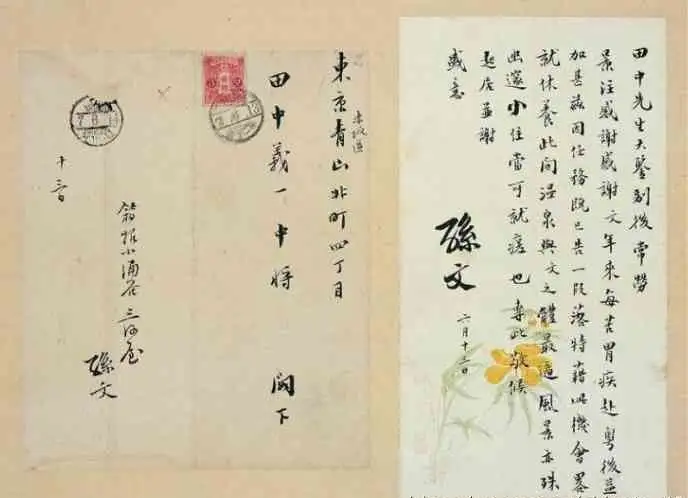 田中先生大鑒別後常勞
景注感謝感謝文年來每苦胃疾赴粵後益
加甚茲因任務既已告一段落特藉此機會畧
就休養此间温泉與文之體最適風景亦殊
幽邃小住當可就痊也專此敬候
起居並謝
盛意
孫文
六月十三日
東京青山北町四丁目
赤坂區
田中義一中將 閣下
箱根小涌谷三河屋
孫文
十三日